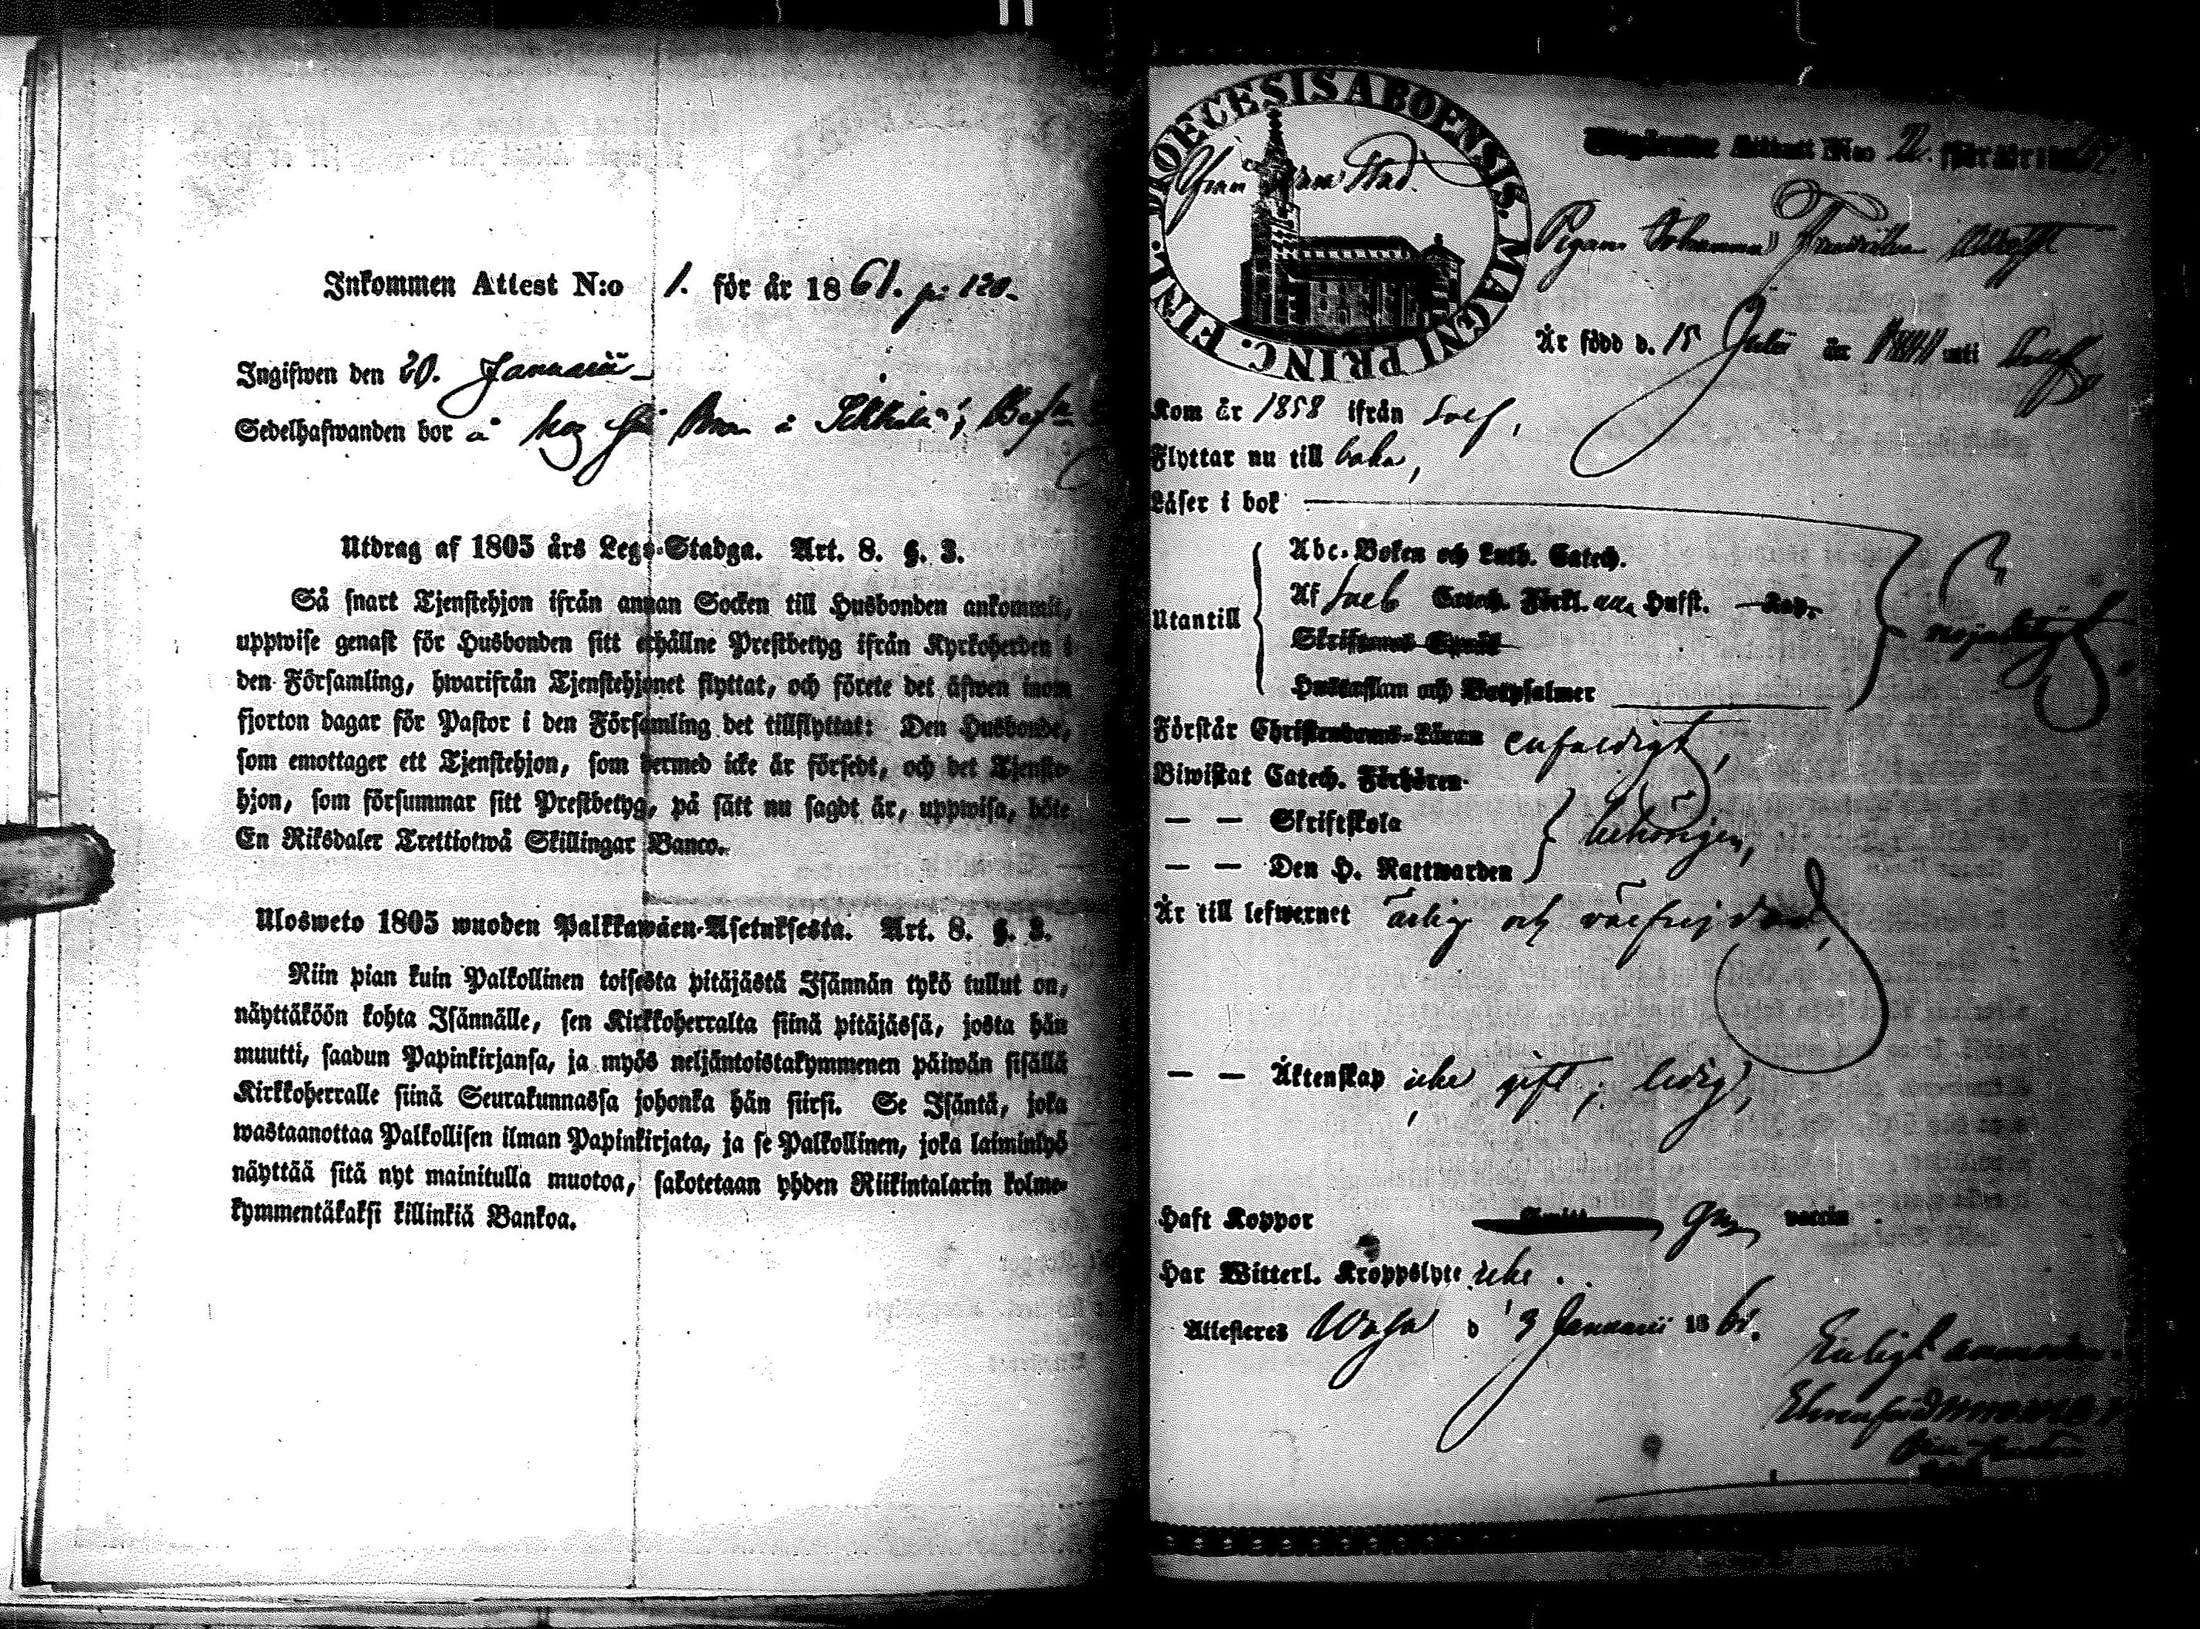 Inkommen Attest N:o 1. för år 1861. p: 120.
Ingifwen den 20. Januarii
Sedelhafwanden bor å
Utdrag af 1805 års Lego-Stadga. Art. 8. §. 3.
Så snart Tjenstehjon ifrån annan Socken till Husbonden ankommit,
uppwise genast för Husbonden sitt erhållne Prestbetyg ifrån Kyrkoherden i
den Församling, hwarifrån Tjenstehjonet flyttat, och förete det äfwen inom
fjorton dagar för Pastor i den Församling det tillflyttat: Den Husbonde,
som emottager ett Tjenstehjon, som dermed icke är försedt, och det Tjenste-
hjon, som försummar sitt Prestbetyg, på sätt nu sagdt är, uppwisa, böte
En Riksdaler Trettiotwå Skillingar Banco.
Ulosweto 1805 wuoden Palkkawäen-Asetuksesta. Art. 8. §. 3.
Niin pian kuin Palkollinen toisesta pitäjästä Isännän tykö tullut on,
näyttäköön kohta Isännälle, sen Kirkkoherralta siinä pitäjässä, josta hän
muutti, saadun Papinkirjansa, ja myös neljäntoistakymmenen päiwän sisällä
Kirkkoherralle siinä Seurakunnassa johonka hän siirsi. Se Isäntä, joka
wastaanottaa Palkollisen ilman Papinkirjata, ja se Palkollinen, joka laiminlyö
näyttää sitä nyt mainitulla muotoa, sakotetaan yhden Riikintalarin kolme-
kymmentäkaksi killinkiä Bankoa.
DIOECESIS ABOENSIS. MAGNI PRINC. FINL.
Ifrån Wasa Stad.
Attest N:o 2. för år 18
Pigan Johanna Fredrika
Är född d. 15 Julii år uti Solf
Kom år 1858 ifrån Solf,
Flyttar nu till baka,
Läser i bok
Utantill
Abc-Boken och Luth. Catech.
Af Sveb Catech. Förkl. Hufst.
Skriftenes Språk
Hustaflan och Botpsalmer
nöjaktigt
Förstår Christendoms-Läran enfaldigt,
Biwistat Catech. Förhören
— — Skriftskola
— — Den H. Nattwarden
behörigen,
Är till lefwernet ärlig och välfrejdad,
— — Äktenskap icke gift; ledig,
Haft Koppor
Har Witterl. Kroppslyte icke.
Attesteras Wasa d 3 Januarii 1861.
Enligt